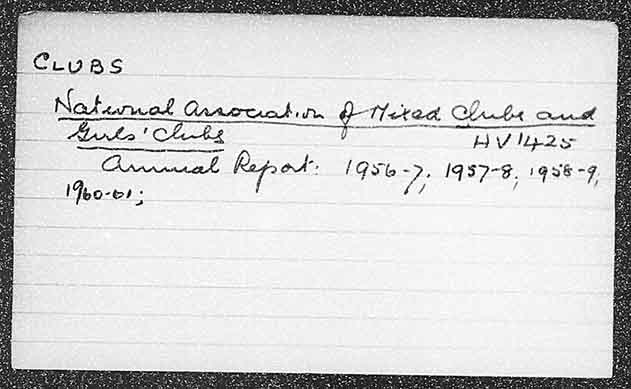 CLUBS
National Association of Mixed Clubs and
Girls' Clubs
HV1425
Annual Report: 1956-7, 1957-8, 1958-9,
1960-61;